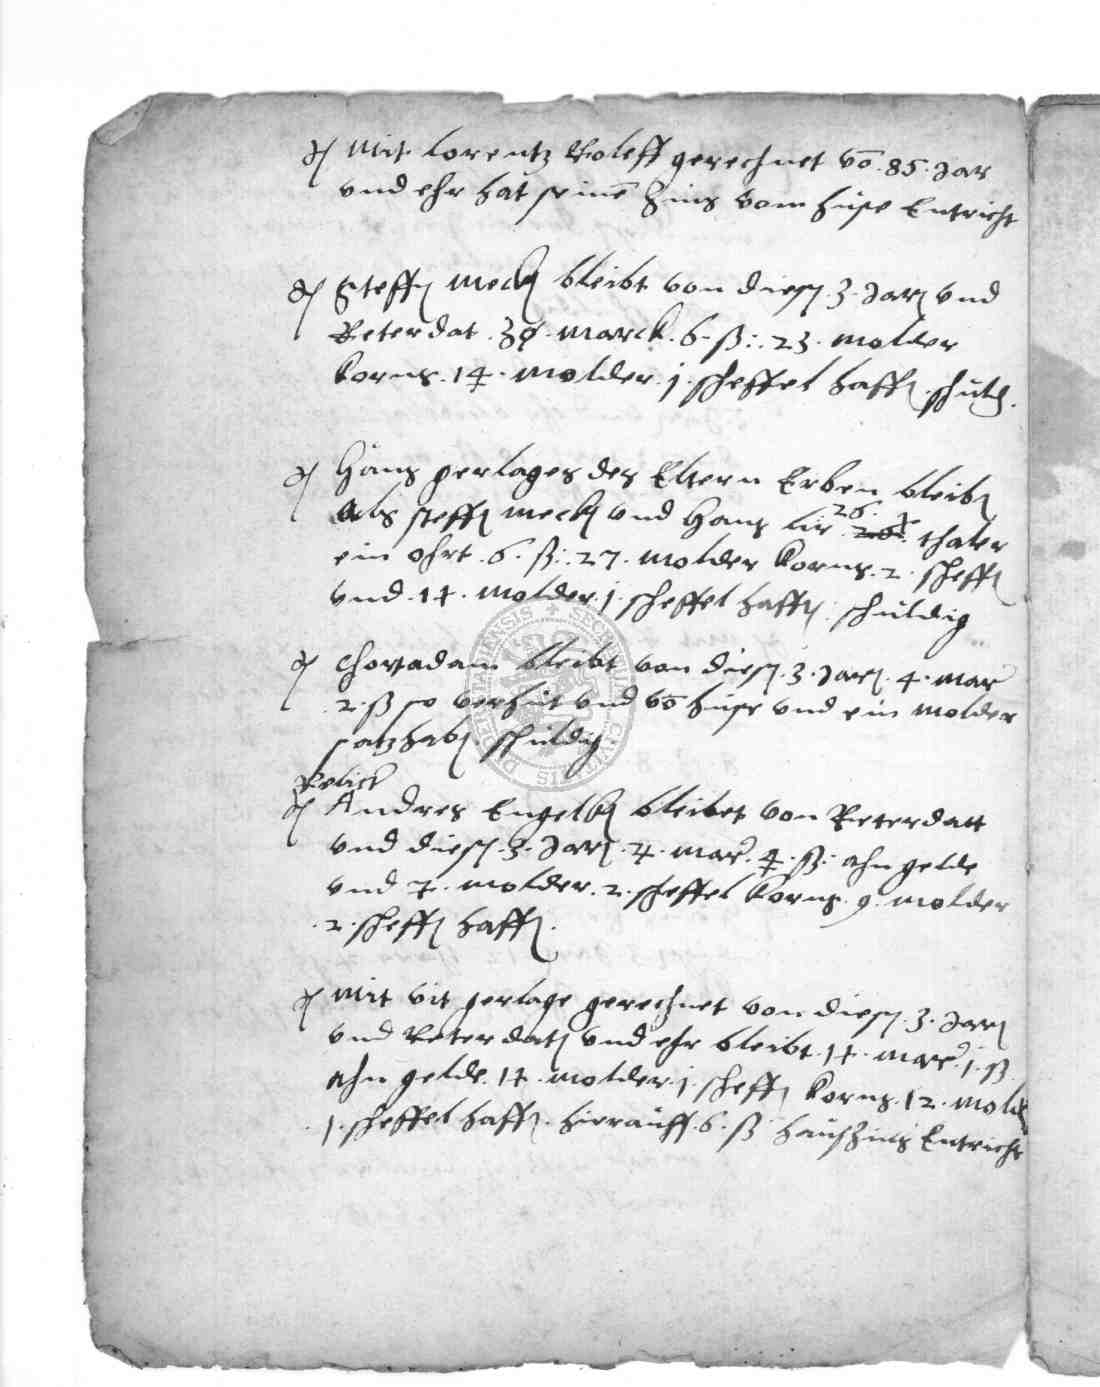 Mit Lorentz Roleff gerechnet vō .85. Jar
vnd ehr hat seinē Zins vom huse Entricht
Steffen Meck bleibt von diesen .3. Jaren vnd
Reterdat .30. marck .6. ß: .23. molder
Korns .14. molder .j. scheffel haffen schuld.
Hans gerlages des Eltern Erben bleiben
Als steffen mecken vnd Hans 26. thaler
ein ohrt .6. ß: .27. molder Korns .2. scheffel
vnd .14. molder .j. scheffel haffen schuldig
bleibt von diesen .3. Jaren .4. mar
.2. ß so verhüt vnd vō huse vnd ein molder
satzhaben schuldig
Relict
Andres Engelken bleibet von Reterdatt
vnd diesen .3. Jaren .4. mar .4. ß. ahn gelde
vnd .4. molder .2. scheffel Korns .9. molder
.2. scheffel haffen.
Mit vit gerlage gerechnet von diesen .3. Jaren
vnd Reterdaten vnd ehr bleibt .14. mar .j. ß
ahn gelde .14. molder .j. scheffel Korns .12. mold
.j. scheffel haffen. hierauff .6. ß haußzins Entricht